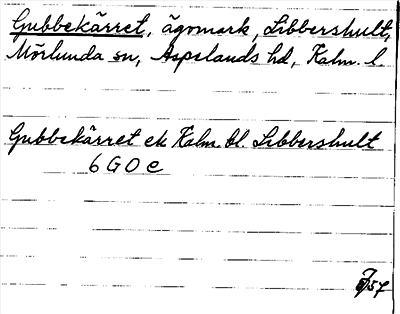 Gubbekärret, ägomark, Libbershult,
Mörlunda sn, Aspelands hd, Kalm. l.
Gubbekärret ek Kalm. bl. Libbershult
6 G 0 e
57